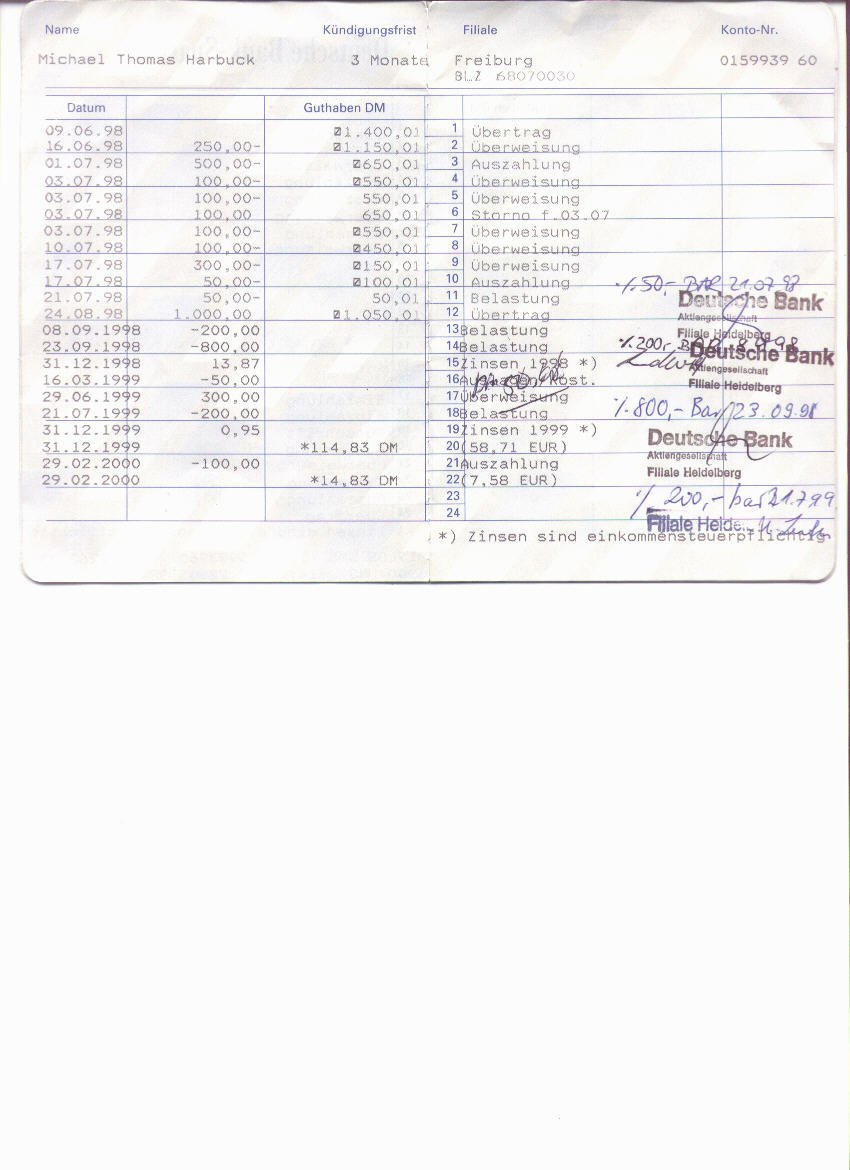 Name Kündigungsfrist Filiale Konto-Nr.
Michael Thomas Harbuck 3 Monate Freiburg 0159939 60
BLZ 68070030
Datum Guthaben DM
09.06.98 1.400,01 1 Übertrag
16.06.98 250,00- 1.150,01 2 Überweisung
01.07.98 500,00- 650,01 3 Auszahlung
03.07.98 100,00- 550,01 4 Überweisung
03.07.98 100,00- 550,01 5 Überweisung
03.07.98 100,00 650,01 6 Storno f.03.07
03.07.98 100,00- 550,01 7 Überweisung
10.07.98 100,00- 450,01 8 Überweisung
17.07.98 300,00- 150,01 9 Überweisung
17.07.98 50,00- 100,01 10 Auszahlung
21.07.98 50,00- 50,01 11 Belastung
24.08.98 1.000,00 1.050,01 12 Übertrag
08.09.1998 -200,00 13 Belastung
23.09.1998 -800,00 14 Belastung
31.12.1998 13,87 15 Zinsen 1998 *)
16.03.1999 -50,00 16
29.06.1999 300,00 17 Überweisung
21.07.1999 -200,00 18 Belastung
31.12.1999 0,95 19 Zinsen 1999 *)
31.12.1999 *114,83 DM 20 (58,71 EUR)
29.02.2000 -100,00 21 Auszahlung
29.02.2000 *14,83 DM 22 (7,58 EUR)
23
24
*) Zinsen sind einkommensteuerpflichtig
./. 50,- BAR 21.07.98
Deutsche Bank
Aktiengesellschaft
Filiale Heidelberg
./. 200,-
Deutsche Bank
Aktiengesellschaft
Filiale Heidelberg
./. 800,- Bar 23.09.98
Deutsche Bank
Aktiengesellschaft
Filiale Heidelberg
./. 200,- bar 21.7.99
Filiale Heide